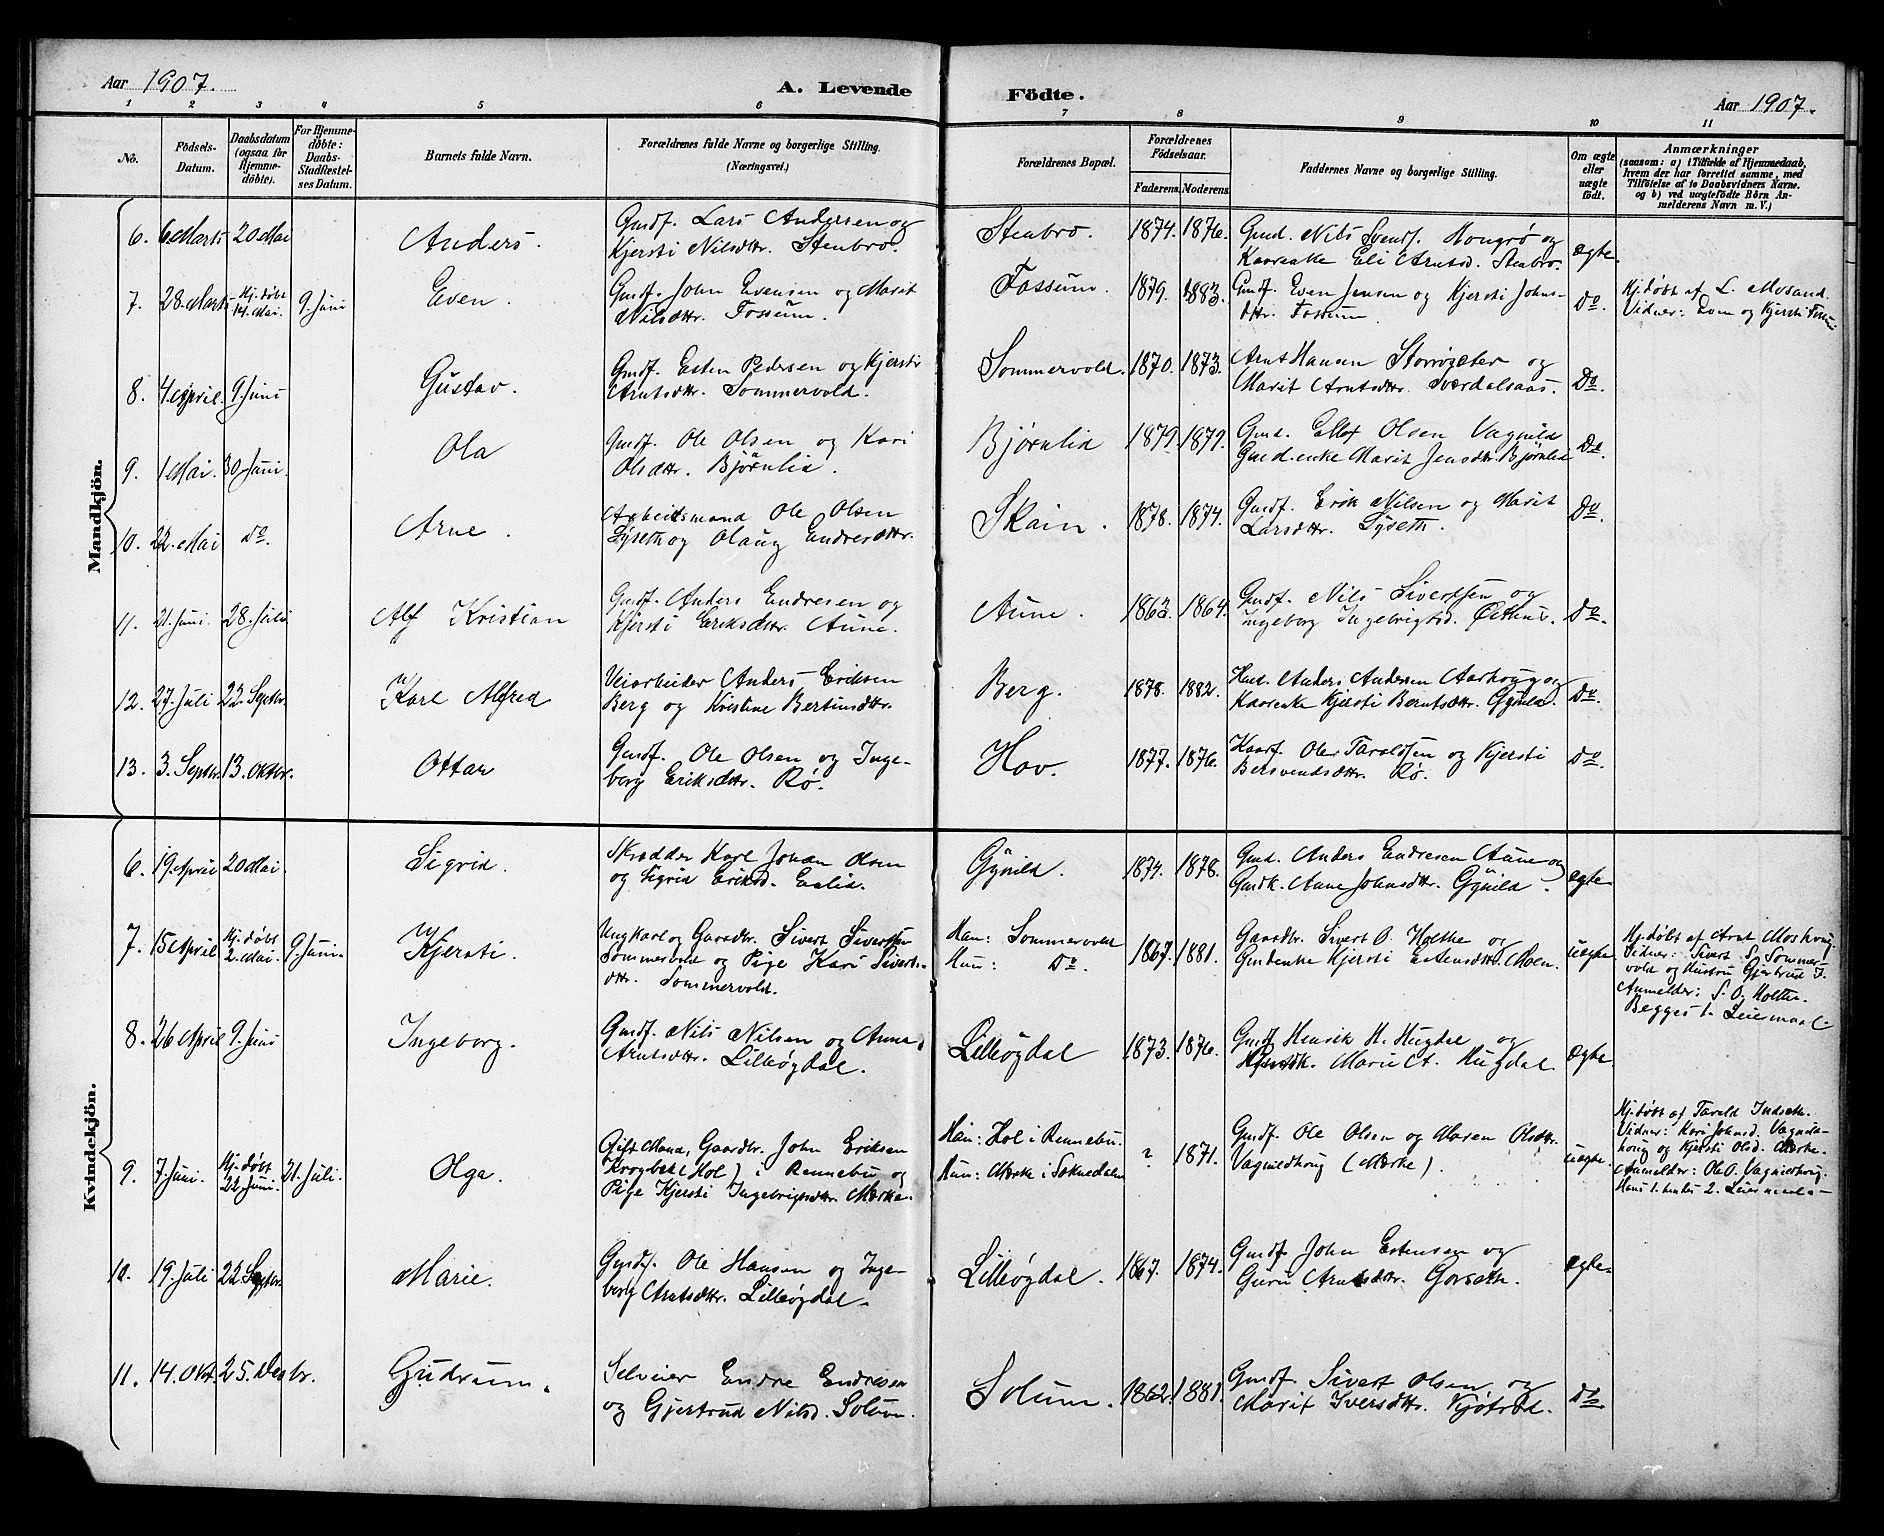 Aar 1907. A. Levende Födte. Aar 1907.
1 2 3 4 5 6 7 8 9 10 11
Nô. Födsels-Datum. Daabsdatum (ogsaa for Hjemme-döbte). For Hjemme-döbte: Daabs-Stadfæstel-ses Datum. Barnets fulde Navn. Forældrenes fulde Navne og borgerlige Stilling. (Næringsvei.) Forældrenes Bopæl. Forældrenes Födselsaar. Faderens. Moderens. Faddernes Navne og borgerlige Stilling. Om ægte eller uægte födt. Anmærkninger (saasom: a) i Tilfælde af Hjemmedaab, hvem der har forrettet samme, med Tilföielse af to Daabsvidners Navne. og b) ved uægtefödte Börn An-melderens Navn m. V.)
Mandkjön.
6. 6 Marts 20 Mai Anders. Gmdf. Lars Andersen og
Kjersti Nilsdtr. Stenbro. Stenbro. 1874. 1876. Gmd. Nils Svendf. Hongrø og
Kaarenke Eli Arntsd. Stenbro. Ægte.
7. 28 Marts Hj. døbt 14. Mai. 9 Juni Even. Gmdf. John Evensen og Marit
Nilsdtr. Fossum. Fossum. 1879. 1883. Gmdf. Even Jensen og Kjersti Johns-
dtr. Fossum. Do. Hj. døbt af L. Mosand.
Vidner: Even og Kjersti Fossum
8. 4 April. 9. Juni Gustav. Gmdf. Esten Pedersen og Kjersti
Arntsdtr. Sommervold. Sommervold. 1870. 1873. Arnt Hansen Storrøseter og
Marit Arntsdtr. Sværdalsaas. Do.
9. 1 Mai. 30 Juni. Ola Gmdf. Ole Olsen og Kari
Olsdtr. Bjørnlid. Bjørnlid 1879. 1879. Gmd. Ellef Olsen Vagnild
Gmd.enke Marit Jensdtr. Bjørnlid Do.
10. 22. Mai Do. Arne. Arbeidsmand Ole Olsen
Lyseth og Olaug Endresdtr. Skain. 1878. 1874. Gmdf. Erik Nilsen og Marit
Larsdtr. Lyseth. Do.
11. 21. Juni. 28. Juli Alf Kristian Gmdf. Anders Endresen og
Kjersti Eriksdtr. Aune. Aune. 1863. 1864. Gmdf. Nils Sivertsen og
Ingeborg Ingebrigtsd. Østhus. Do.
12. 27. Juli 22. Septbr. Karl Alfred Veiarbeider Anders Eriksen
Berg og Kristine Berntsdtr. Berg. 1878. 1882. Anders Andersen Aarhoug og
Kaarenke Kjersti Berntsdtr. Gynild. Do.
13. 3. Septbr. 13. Oktbr. Ottar Gmdf. Ole Olsen og Inge-
borg Eriksdtr. Rø. Hov. 1877. 1876. Kaarf. Ole Taraldsen og Kjersti
Bersvendsdtr. Rø. Do.
Kvindekjön.
6. 19. April 20 Mai. Sigrid. Skrædder Karl Johan Olsen
og Sigrid Eriksd. Enlid. Gynild. 1874. 1878. Gmd. Anders Endresen Aune og
Gmdk. Anne Johnsdtr. Gynild. Ægte
7. 15 April Hj. døbt 2. Mai. 9. Juni. Kjersti. Ungkarl og Gaardbr. Sivert Sivertsen
Sommervold og Pige Kari Siverts-
dtr. Sommervold. Han: Sommervold
Hun: Do. 1867. 1881. Gaardbr. Sivert O. Holthe og
Gmdenke Kjersti Estensdtr. Moen. uægte Hj. døbt af Arnt Moshoug.
Vidner: Sivert S. Sommer-
vold og Hustru Gjertrud I.
Anmelder: S. O. Holthe.
Begges 1. Leiermaal.
8. 26 April 9. Juni Ingeborg. Gmdf. Nils Nilsen og Anne
Arntsdtr. Lilleøgdal. Lilleøgdal 1873. 1876. Gmdf Henrik H. Hugdal og
Marie A. Hugdal. Ægte.
9. 7. Juni. Hj. døbt 22 Juni. 21. Juli. Olga. Gift Mand, Gaardbr. John Eriksen
(Hol) i Rennebu og
Pige Kjersti Ingebrigtsdtr. Mærke. Han: Hol i Rennebu.
Hun: Mærke i Soknedalen ? 1871. Gmdf. Ole Olsen og Maren Olsdtr.
Vagnildhoug (Mærke). uægte. Hj. døbt af Tarald Indseth.
Vidner: Kari Johnsd. Vagnild-
houg og Kjersti Olsd. Mærke.
Anmelder: Ole O. Vagnildhoug.
Hans 1. hendes 2. Leiermaal.
10. 19. Juli 22 Septbr. Marie. Gmdf. Ole Hansen og Inge-
borg Arntsdtr. Lilleøgdal. Lilleøgdal. 1867. 1874. Gmdf. John Estensen og
Guru Arntsdtr. Gorseth. Ægte.
11. 14. Okt. 25. Decbr. Gudrun. Selveier Endre Endresen
og Gjertrud Nilsd. Solum. Solum. 1862. 1881. Gmdf. Sivert Olsen og
Marit Iversdtr. Kjøtrød. Do.